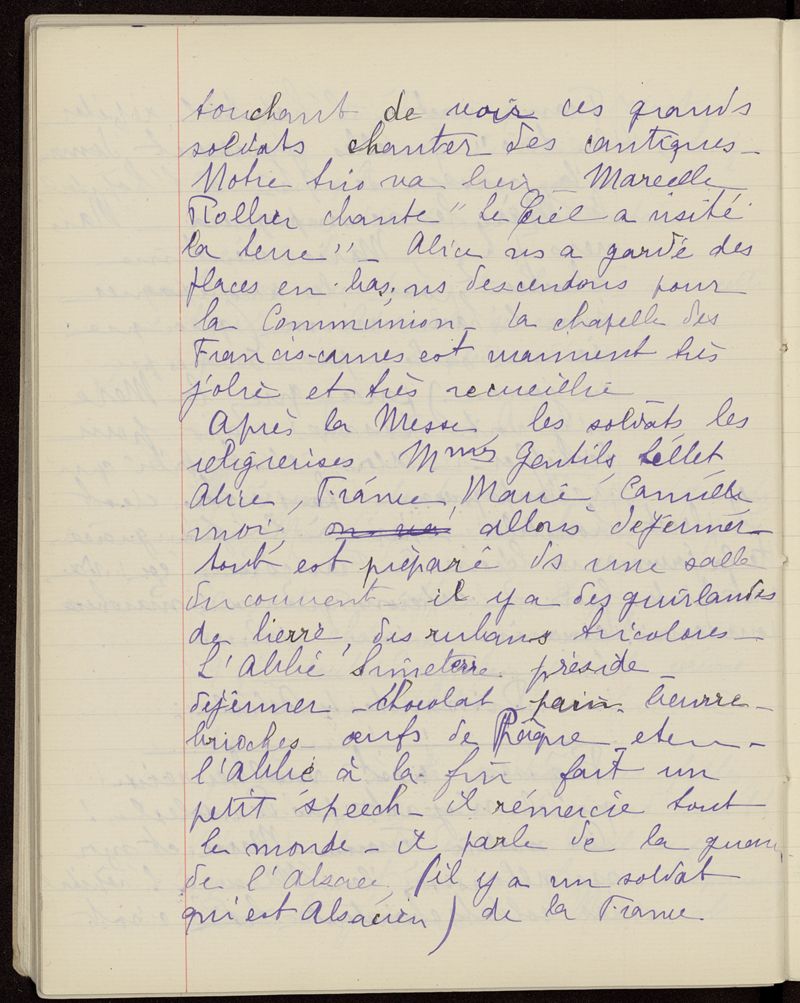 touchant de voir ces grands
soldats chanter des cantiques_
Notre trio va bien _ Marcelle
Rollier chante " Le Ciel a visité
la terre " _ Alice ns a gardé des
places en bas, ns descendons pour
la Communion _ la chapelle des
Franciscaines est vraiment très
jolie et très recueillie
Après la Messe, les soldats les
religieuses, Mmes Gentils, Lellet,
Alice, France, Marie, Camille
moi, on va allons déjeuner _
tout est préparé ds une salle
du couvent _ il y a des guirlandes
de lierre, des rubans tricolores _
L'Abbé Simeterre préside
déjeuner _ chocolat pain beurre _
brioches _ œufs de Pâque, etc _
l'Abbé à la fin fait un
petit speech _ il remercie tout
le monde _ il parle de la guerre,
de l'Alsace, (il y a un soldat
qui est Alsacien) de la France